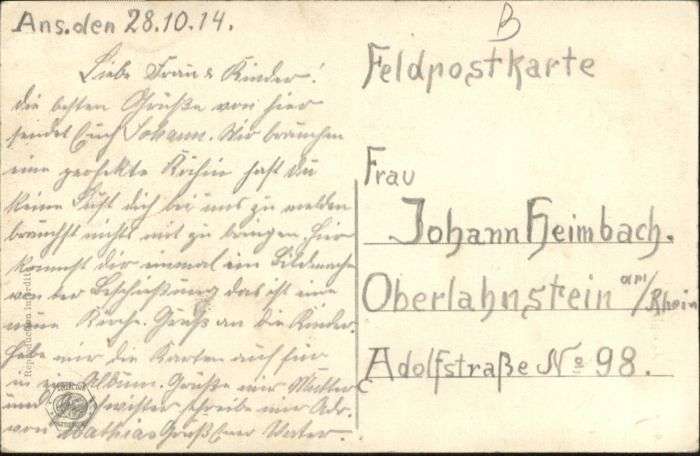 Ans. den 28.10.14.
Liebe Frau & Kinder!
die besten Grüße von hier
sendet Euch Johann. Wir brauchen
eine perfekte Köchin hast du
keine Lust dich bei uns zu melden
brauchst nichts mit zu bringen. Hier
kommst dir einmal ein
von der Beschießung das ist eine
neue Kirche. Gruß an die Kinder.
Hebe mir die Karten auf für
in ein Album. Grüße mir Mutter
und schreibe mir Adr.
von Mathias Gruß Euer Vater.
B
Feldpostkarte
Frau
Johann Heimbach.
Oberlahnstein am/Rhein
Adolfstraße No 98.